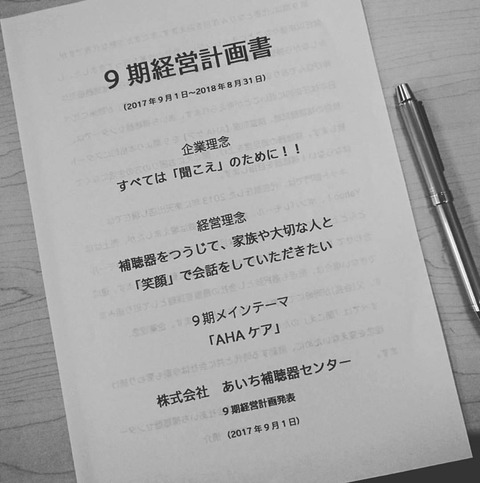 9期経営計画書
（2017年9月1日～2018年8月31日）
企業理念
すべては「聞こえ」のために！！
経営理念
補聴器をつうじて、家族や大切な人と
「笑顔」で会話をしていただきたい
9期メインテーマ
「AHAケア」
株式会社　あいち補聴器センター
9期経営計画発表
（2017年9月1日）